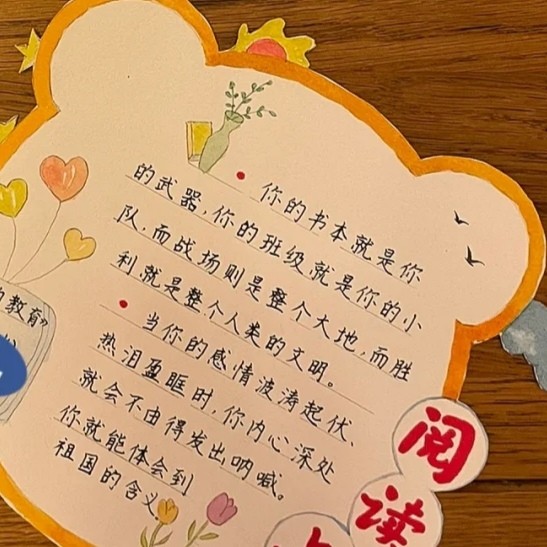 你的书本就是你
的武器,你的班级就是你的小
队,而战场则是整个大地,而胜
利就是整个人类的文明。
当你的感情波涛起伏、
热泪盈眶时,你内心深处
就会不由得发出呐喊。
你就能体会到
祖国的含义
教育》
阅读